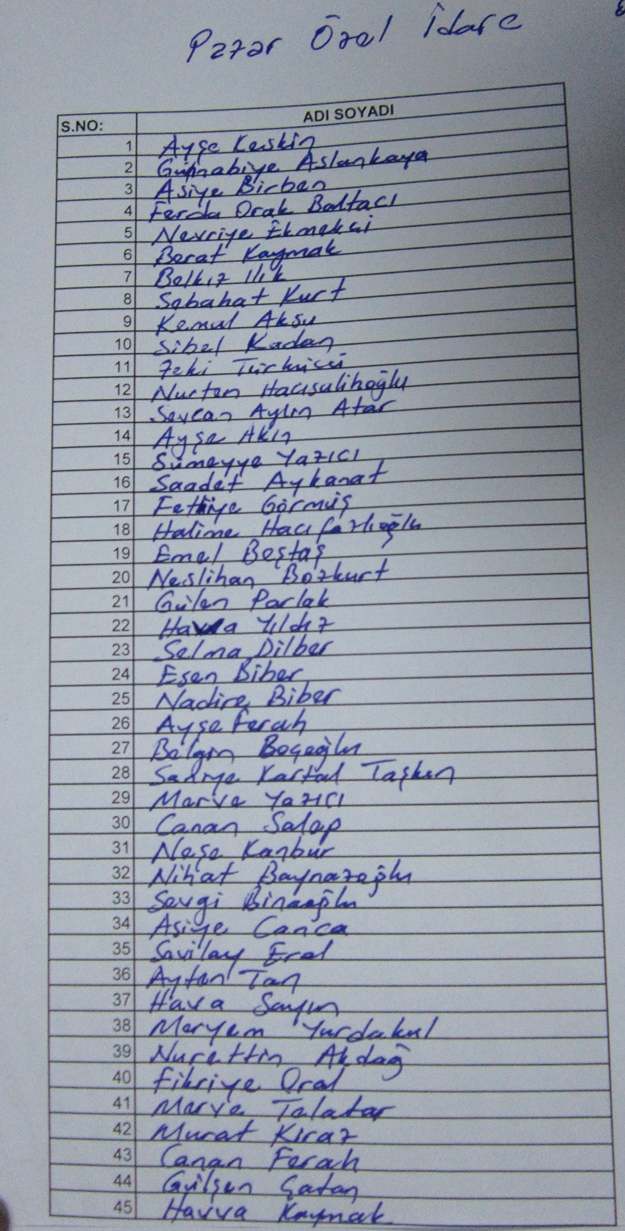 Pazar Özel İdare
S.NO: ADI SOYADI
1 Ayşe Keskin
2 Günnabiye Aslankaya
3 Asiye Birben
4 Ferda Orak Baltacı
5 Nevriye Ekmekçi
6 Berat Kaymak
7 Belkız Ilık
8 Sabahat Kurt
9 Kemal Aksu
10 Sibel Kadan
11 Zeki Türkücü
12 Nurten Hacısalihoğlu
13 Sevcan Aylin Atar
14 Ayşe Akın
15 Sümeyye Yazıcı
16 Saadet Aykanat
17 Fethiye Görmüş
18 Halime Hacıfazlıoğlu
19 Emel Beştaş
20 Neslihan Bozkurt
21 Gülen Parlak
22 Havva Yıldız
23 Selma Dilber
24 Esen Biber
25 Nadire Biber
26 Ayşe Ferah
27 Belgin
28 Saniye Kartal Taşkın
29 Merve Yazıcı
30 Canan Salap
31 Neşe Kanbur
32 Nihat Baynazoğlu
33 Sevgi
34 Asiye Canca
35 Sevilay Erol
36 Ayten Tan
37 Hava Sayın
38 Meryem Yurdakul
39 Nurettin Akdağ
40 Fikriye Oral
41 Merve Talatar
42 Murat Kiraz
43 Canan Ferah
44 Gülşen Çatan
45 Havva Kaymak